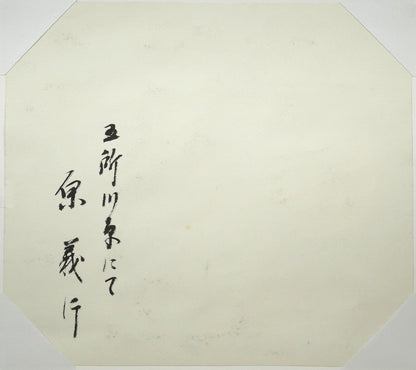 五所川原にて
原義行